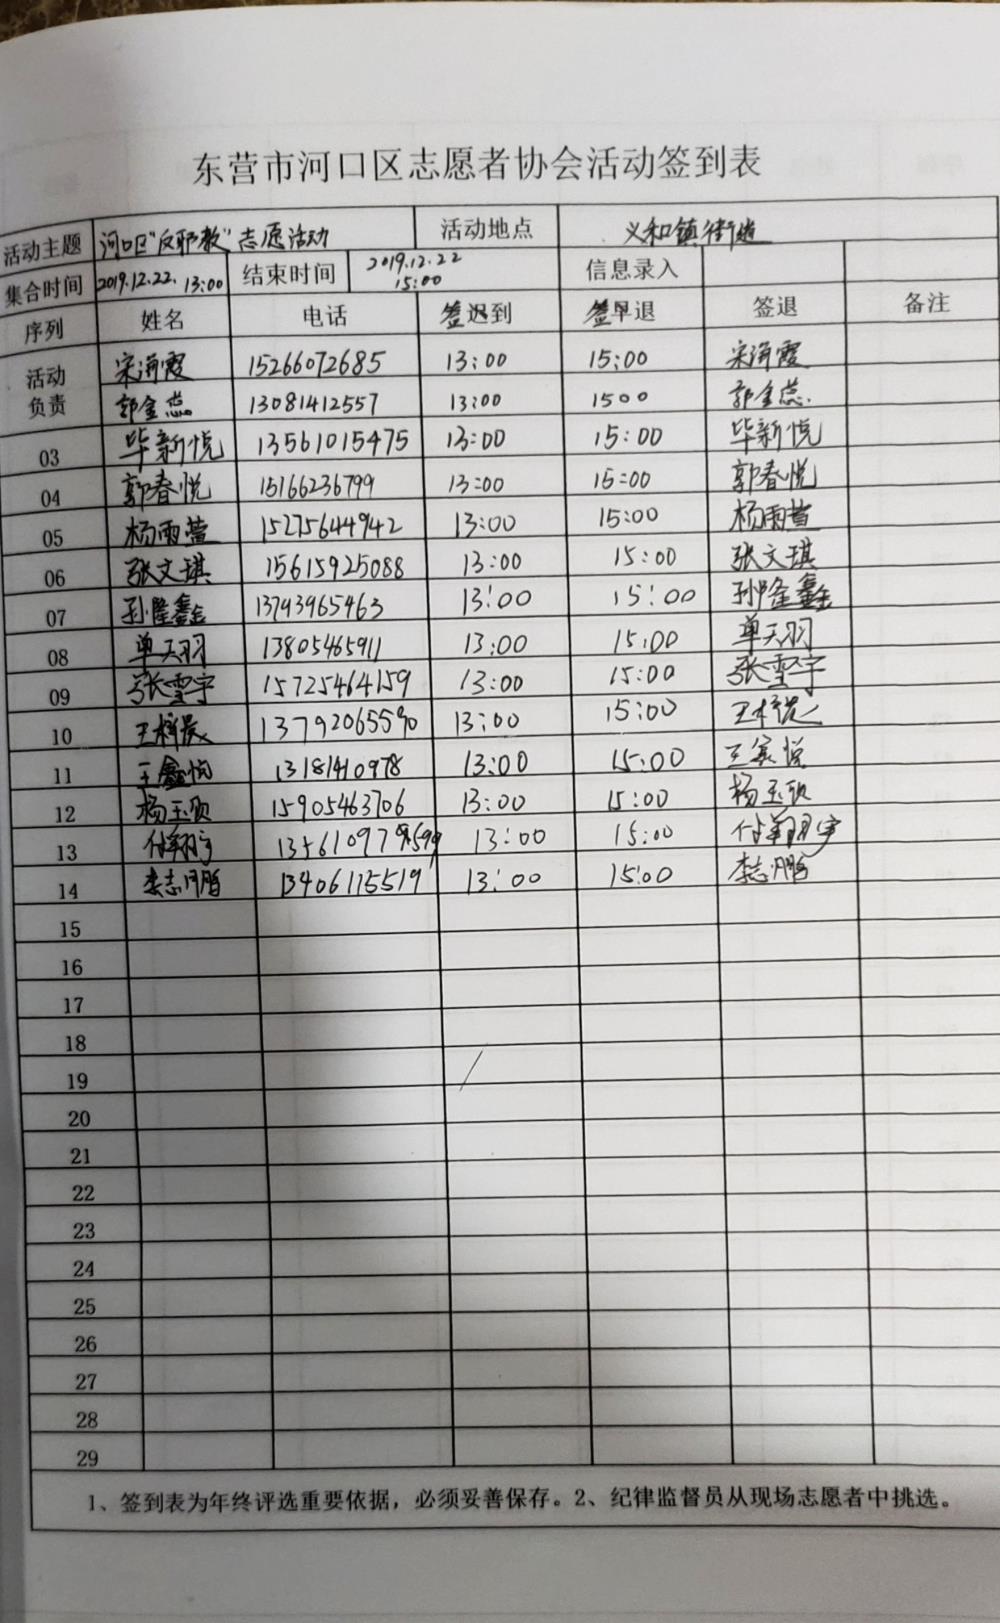 东营市河口区志愿者协会活动签到表
活动主题 河口区“反邪教”志愿活动 活动地点 义和镇街道
集合时间 2019.12.22. 13:00 结束时间 2019.12.22 15:00 信息录入
序列 姓名 电话 签迟到 签早退 签退 备注
活动负责 宋海霞 15266072685 13:00 15:00 宋海霞
郭金蕊 13081412557 13:00 1500 郭金蕊.
03 毕新悦 13561015475 13:00 15:00 毕新悦
04 郭春悦 15166236799 13:00 15:00 郭春悦
05 杨雨萱 15275644942 13:00 15:00 杨雨萱
06 张文琪 15615925088 13:00 15:00 张文琪
07 孙隆鑫 13793965463 13:00 15:00 孙隆鑫
08 单天羽 13805465911 13:00 15:00 单天羽
09 张雪宇 15725464159 13:00 15:00 张雪宇
10 13792065590 13:00 15:00
11 王鑫悦 13181410978 13:00 15:00
12 杨玉欣 15905463706 13:00 15:00 杨玉欣
13 付翔宇 13:00 15:00 付翔宇
14 李志鹏 13406115519 13:00 15:00 李志鹏
15
16
17
18
19
20
21
22
23
24
25
26
27
28
29
1、签到表为年终评选重要依据，必须妥善保存。2、纪律监督员从现场志愿者中挑选。